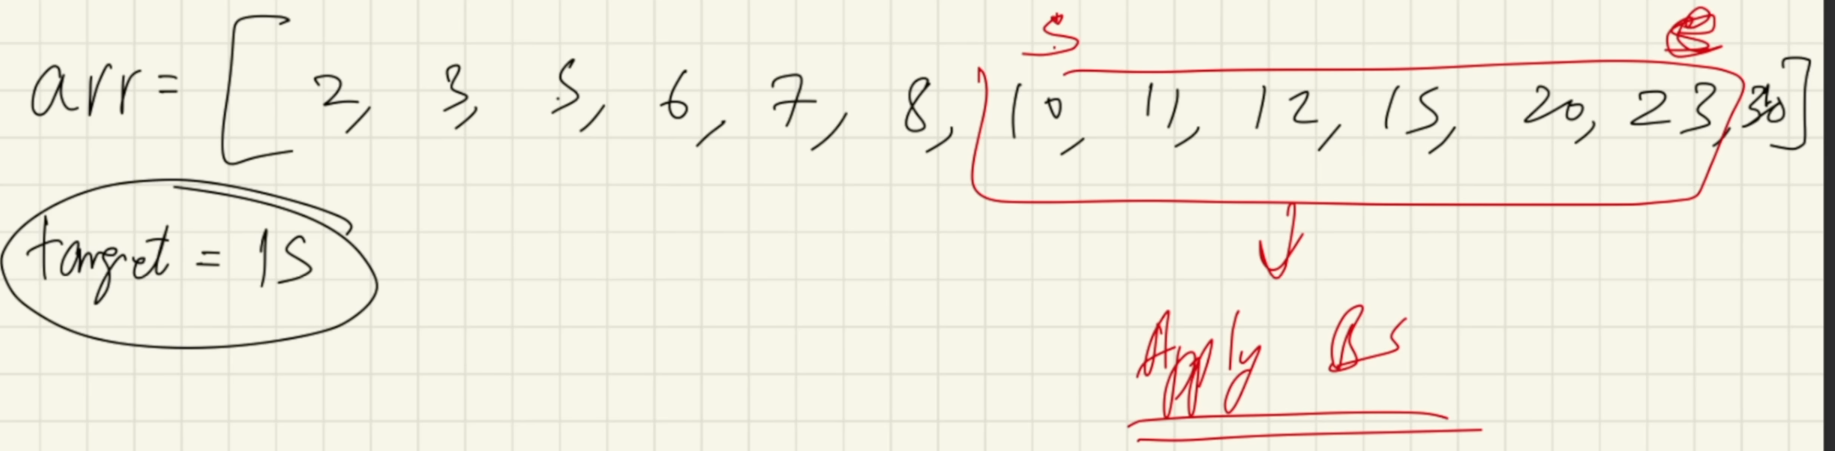 s e
arr = [ 2, 3, 5, 6, 7, 8, 10, 11, 12, 15, 20, 23, 30]
target = 15
Apply BS